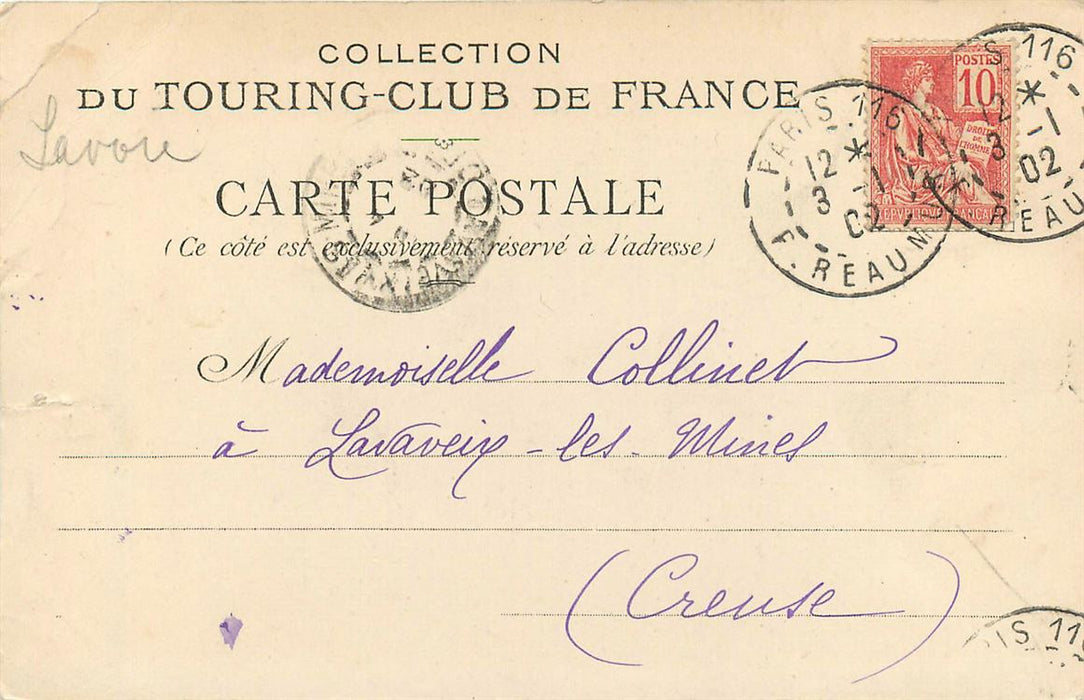 COLLECTION
DU TOURING-CLUB DE FRANCE
Savoie
CARTE POSTALE
(Ce côté est exclusivement réservé à l'adresse)
POSTES
10
DROITS DE L'HOMME
REPVBLIQVE FRANÇAISE
PARIS 116
12 *
3 -1
02
F. REAUMUR
S 116
12 *
3 -1
02
REAU
LAVAVEIX
Mademoiselle Collinet
à Lavaveix-les-Mines
(Creuse)
RIS 116